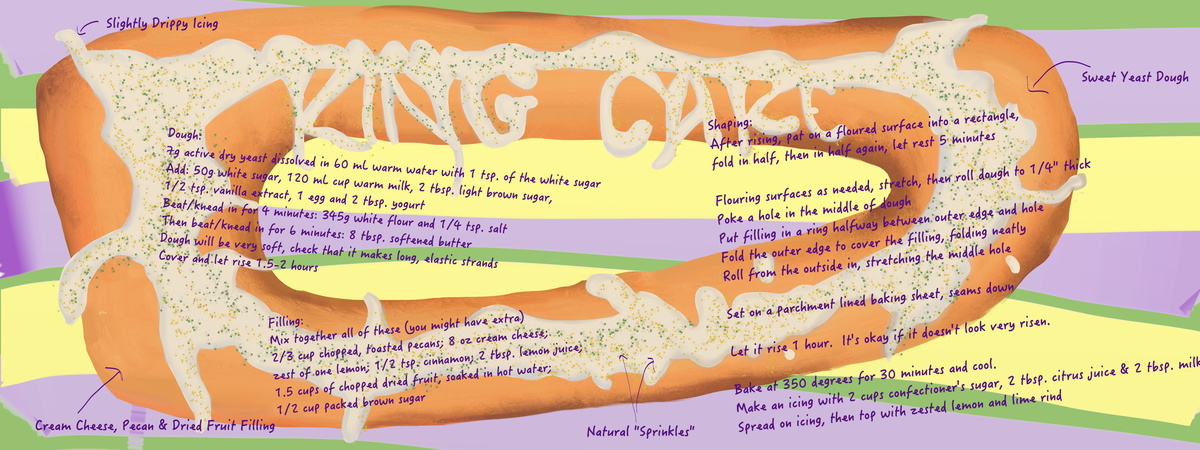 Slightly Drippy Icing
KING CAKE
Sweet Yeast Dough
Dough:
7g active dry yeast dissolved in 60 mL warm water with 1 tsp. of the white sugar
Add: 50g white sugar, 120 mL cup warm milk, 2 tbsp. light brown sugar,
1/2 tsp. vanilla extract, 1 egg and 2 tbsp. yogurt
Beat/knead in for 4 minutes: 345g white flour and 1/4 tsp. salt
Then beat/knead in for 6 minutes: 8 tbsp. softened butter
Dough will be very soft, check that it makes long, elastic strands
Cover and let rise 1.5-2 hours
Filling:
Mix together all of these (you might have extra)
2/3 cup chopped, toasted pecans; 8 oz cream cheese;
zest of one lemon; 1/2 tsp. cinnamon; 2 tbsp. lemon juice;
1.5 cups of chopped dried fruit, soaked in hot water;
1/2 cup packed brown sugar
Cream Cheese, Pecan & Dried Fruit Filling
Natural "Sprinkles"
Shaping:
After rising, pat on a floured surface into a rectangle,
fold in half, then in half again, let rest 5 minutes
Flouring surfaces as needed, stretch, then roll dough to 1/4" thick
Poke a hole in the middle of dough
Put filling in a ring halfway between outer edge and hole
Fold the outer edge to cover the filling, folding neatly
Roll from the outside in, stretching the middle hole
Set on a parchment lined baking sheet, seams down
Let it rise 1 hour. It's okay if it doesn't look very risen.
Bake at 350 degrees for 30 minutes and cool.
Make an icing with 2 cups confectioner's sugar, 2 tbsp. citrus juice & 2 tbsp. milk
Spread on icing, then top with zested lemon and lime rind